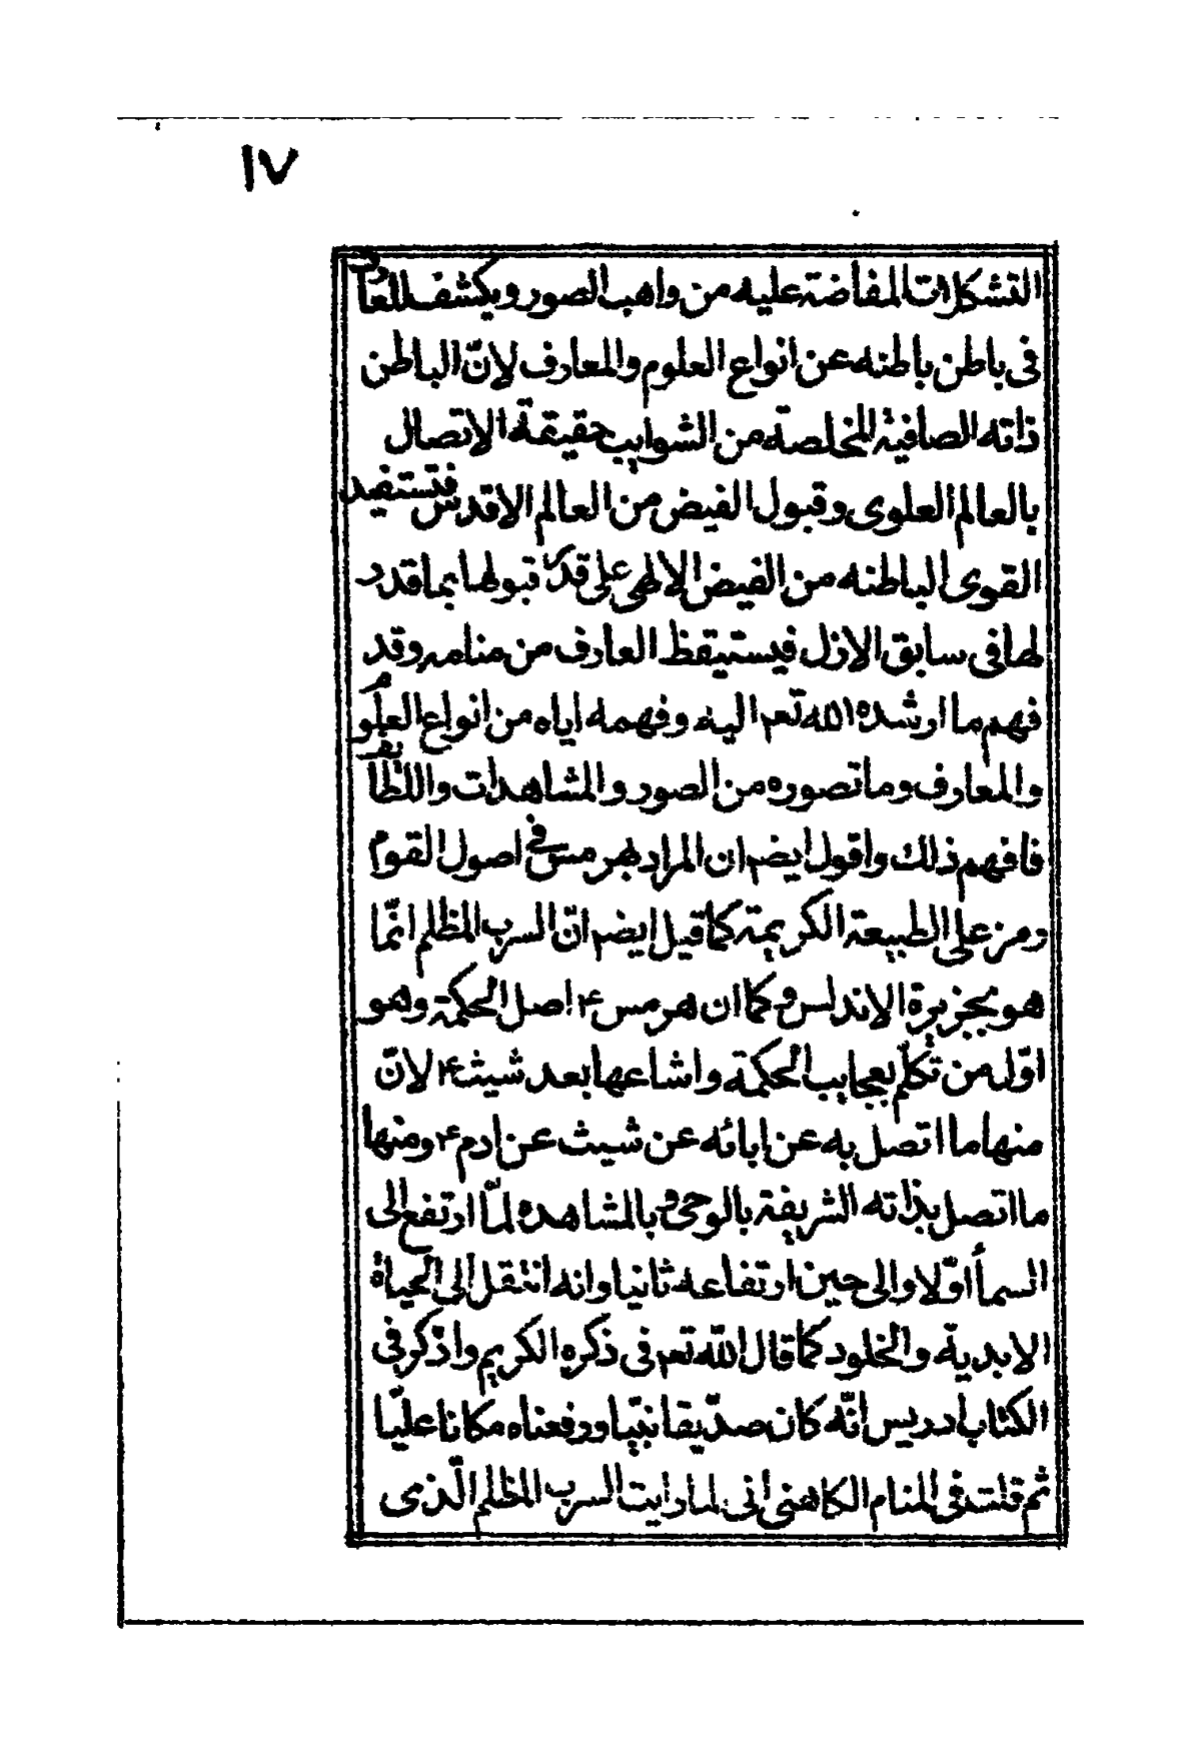 ١٧
التشكلات المفاضة عليه من واهب الصور ويكشف للعارف
فى باطن باطنه عن انواع العلوم والمعارف لانّ الباطن
ذاته الصافية المخلصة من الشوايب حقيقة الاتصال
بالعالم العلوى وقبول الفيض من العالم الاقدس فتستفيد
القوى الباطنه من الفيض الالهى على قدر قبولها بما قدر
لها فى سابق الازل فيستيقظ العارف من منامه وقد
فهم ما ارشده الله تعم اليه وفهمه اياه من انواع العلوم
والمعارف وما تصوره من الصور والمشاهدات واللطايف
فافهم ذلك واقول ايضم ان المراد بهرمس فى اصول القوم
رمز على الطبيعة الكريمة كما قيل ايضم انّ السرب المظلم انّما
هو بجزيرة الاندلس وكما ان هرمس ۴ اصل الحكمة وهو
اوّل من تكلّم بعجايب الحكمة واشاعها بعد شيث ۴ لانّ
منها ما اتصل به عن ابائه عن شيث عن ادم ۴ ومنها
ما اتصل بذاته الشريفة بالوحى وبالمشاهده لمّا ارتفع الى
السمأ اوّلا والى حين ارتفاعه ثانيا وانه انتقل الى الحياة
الابدية والخلود كما قال الله تعم فى ذكره الكريم واذكر فى
الكتاب ادريس انّه كان صدّيقا نبيّا ورفعناه مكانا عليّا
ثم قلت فى المنام الكاهنى انى لما رايت السرب المظلم الّذى